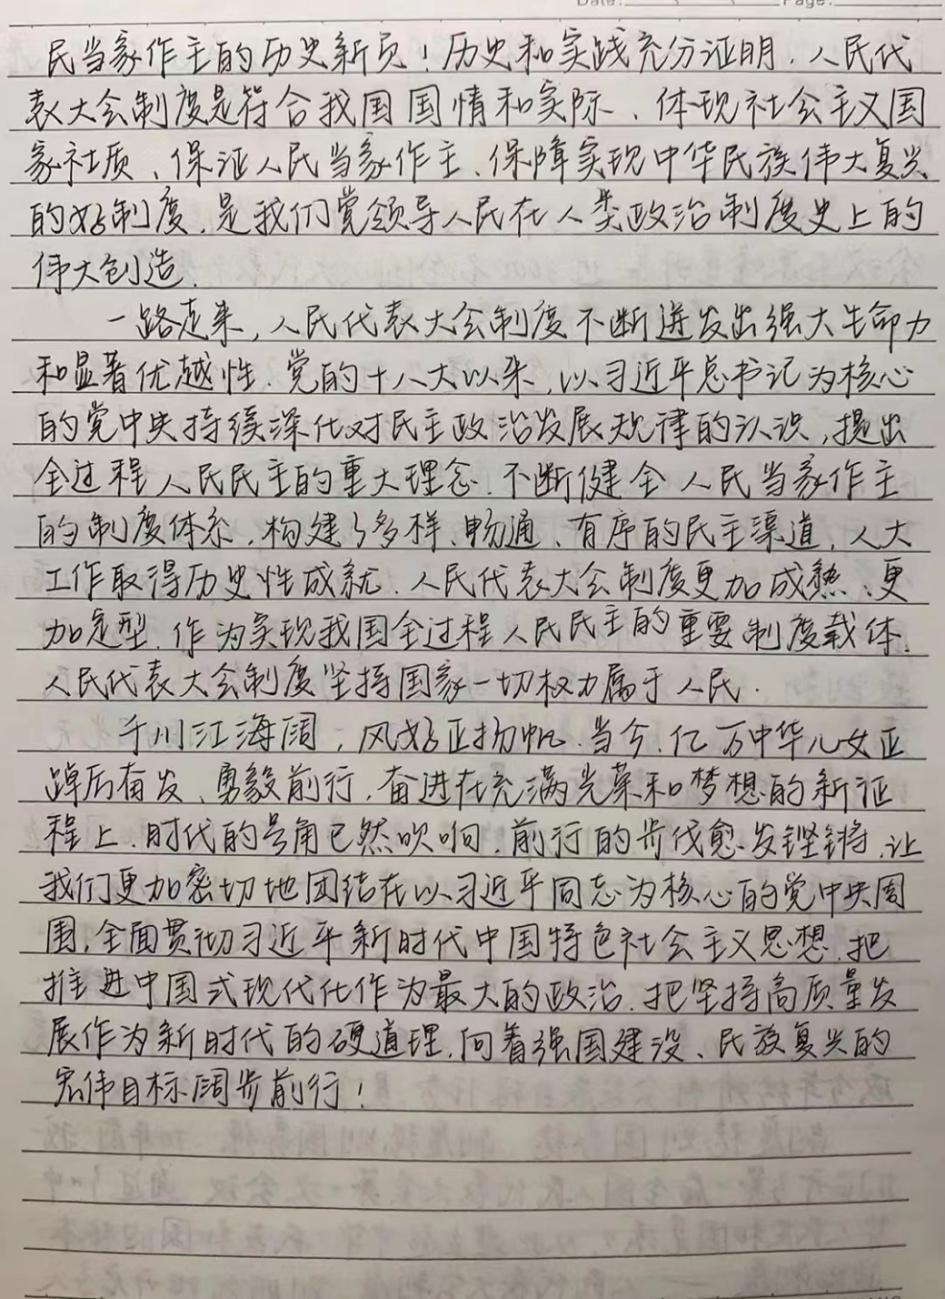 Date: Page:
民当家作主的历史新页!历史和实践充分证明,人民代
表大会制度是符合我国国情和实际、体现社会主义国
家社质、保证人民当家作主、保障实现中华民族伟大复兴
的好制度,是我们党领导人民在人类政治制度史上的
伟大创造.
一路走来,人民代表大会制度不断迸发出强大生命力
和显著优越性.党的十八大以来,以习近平总书记为核心
的党中央持续深化对民主政治发展规律的认识,提出
全过程人民民主的重大理念.不断健全人民当家作主
的制度体系,构建了多样、畅通、有序的民主渠道,人大
工作取得历史性成就.人民代表大会制度更加成熟、更
加定型.作为实现我国全过程人民民主的重要制度载体.
人民代表大会制度坚持国家一切权力属于人民.
千川江海阔,风好正扬帆.当今,亿万中华儿女正
踔厉奋发、勇毅前行,奋进在充满光荣和梦想的新征
程上.时代的号角已然吹响,前行的步伐愈发铿锵.让
我们更加密切地团结在以习近平同志为核心的党中央周
围,全面贯彻习近平新时代中国特色社会主义思想.把
推进中国式现代化作为最大的政治.把坚持高质量发
展作为新时代的硬道理,向着强国建设、民族复兴的
宏伟目标阔步前行!